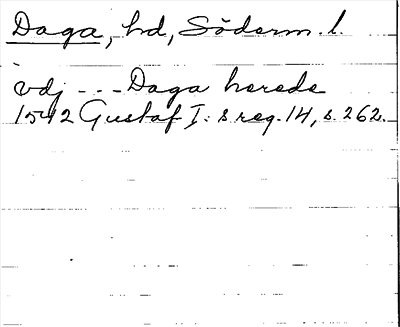 Daga, hd, Söderm. l.
vdj - - - Daga herede
1542 Gustaf I:s reg. 14, s. 262.